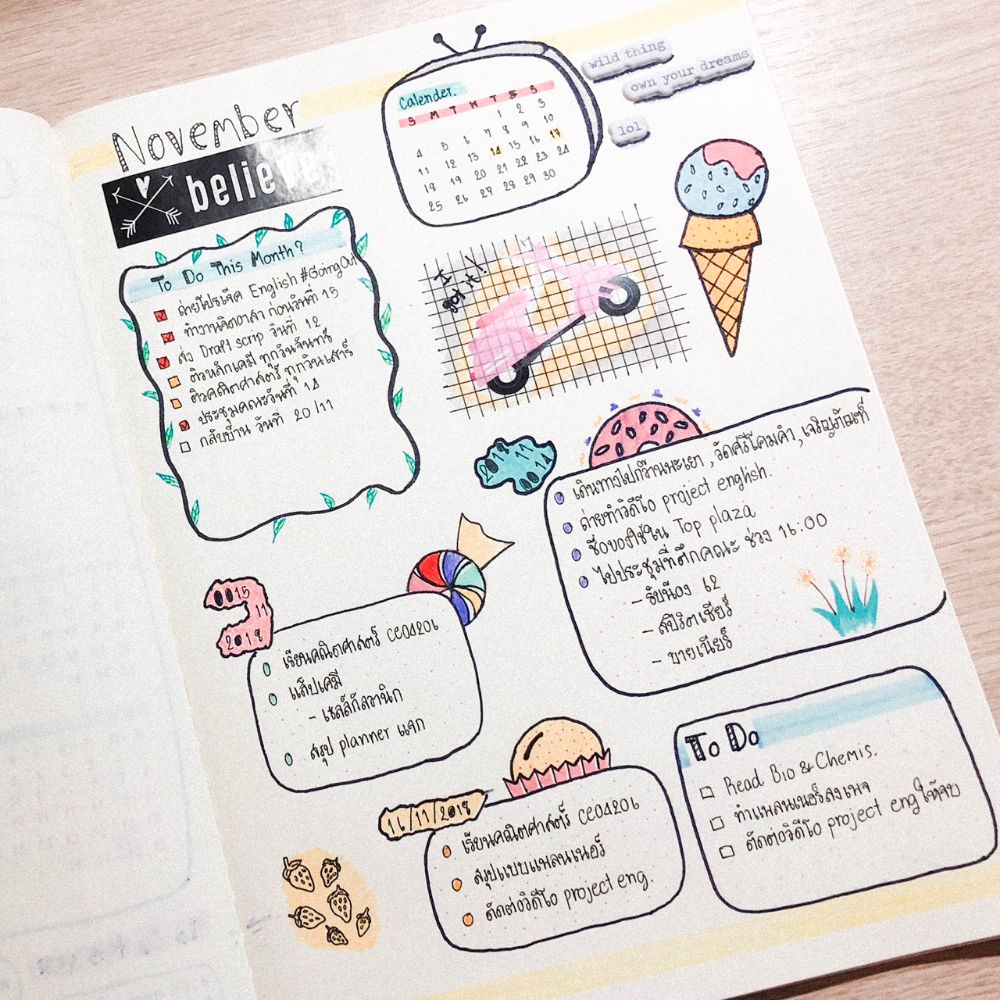 November
believe
Calender.
S M T W T S S
1 2 3
4 5 6 7 8 9 10
11 12 13 14 15 16 17
18 19 20 21 22 23 24
25 26 27 28 29 30
wild thing
own your dreams
lol
To Do This Month?
ถ่ายโปรเจ็ค English #GoingOut
ทำงานจิตอาสา ก่อนวันที่ 15
ส่ง Draft scrip วันที่ 12
ติวหลักเคมี ทุกวันจันทร์
ติวคณิตศาสตร์ ทุกวันเสาร์
ประชุมคณะวันที่ 14
กลับบ้าน วันที่ 20/11
I got it!
2018 11 14
เดินทางไปกว๊านพะเยา, วัดศรีโคมคำ, เจริญภัณฑ์
ถ่ายทำวิดีโอ project english.
ซื้อของใช้ใน Top plaza
ไปประชุมที่ตึกคณะ ช่วง 16:00
- รับน้อง 62
- สปิริตเชียร์
- ขายเนียร์
15
11
2018
เรียนคณิตศาสตร์ CE04206
แล็ปเคมี
- เซลล์กัลวานิก
สรุป planner แจก
16/11/2018
เรียนคณิตศาสตร์ CE04206
สรุปแบบแพลนเนอร์
ตัดต่อวิดีโอ project eng.
To Do
Read Bio & Chemis.
ทำแพลนเนอร์ลงเพจ
ตัดต่อวิดีโอ project eng ให้จบ